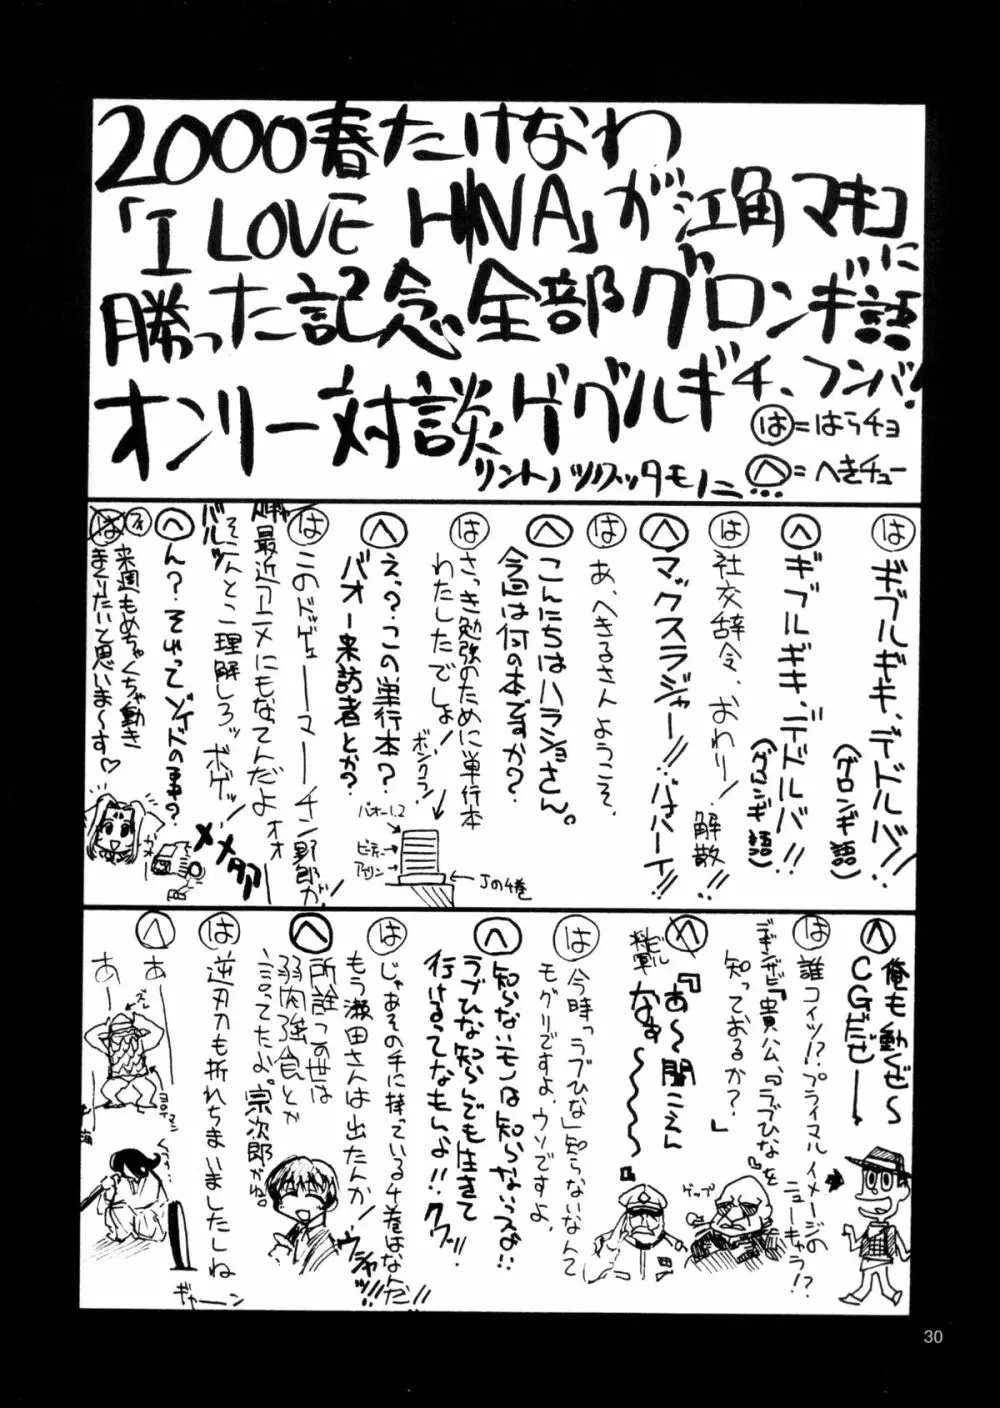 2000春たけなわ
「I LOVE HINA」が江角マキコに
勝った記念全部グロンギ語
オンリー対談ゲゲルギチ、フンバ!
リントノツクッタモノニ…
は=はらチョ
へ=へきチュー
は ギブルギキ、デドルバ!!
(グロンギ語)
へ ギブルギキ、デドルバ!!
(グロンギ語)
は 社交辞令、おわり!
解散!!
へ マックスラジャー!!バはハーイ!!
は あ、へきるさんようこそ、
へ こんにちはハラショさん。
今回は何の本ですか?
は さっき勉強のために単行本
わたしたでしょ!
ボンクラ!
バオー1,2
アイリン
Jの4巻
へ えっ?この単行本?
バオー来訪者とか?
は このドッゲェーーマーーチン野郎が!
最近アニメにもなってんだよオオ
そこんとこ理解しろッボゲッ!
バルッ
へ ん?それってゾイドの事?
メメタア
は 来週もめちゃくちゃ動き
まくりたいと思いま〜す♡
へ 俺も動くぜ〜
CGだぜ——!
は 誰コイツ!?プライマルイメージの
ニューキャラ!?
デギンザビ『貴公、『ラブひな』を
知っておるか?』
ゲップ
へ 『あ〜聞こえん
なぁ〜〜〜〜』
は 今時「ラブひな」知らないなんて
モグリですよ、ウソですよ、
へ 知らないモンは知らないっスよ!!
ラブひな知らんでも生きて
行けるってなもんよ!!クワッ!!
は じゃあその手に持っている4巻はなんだ!!
もう瀬田さんは出たんか!
ウシャッ!!
へ 所詮この世は
弱肉強食とか
言ってたよ。宗次郎がね。
は 逆刃刀も折れちまいましたしね
ギャーン
へ あー
あー